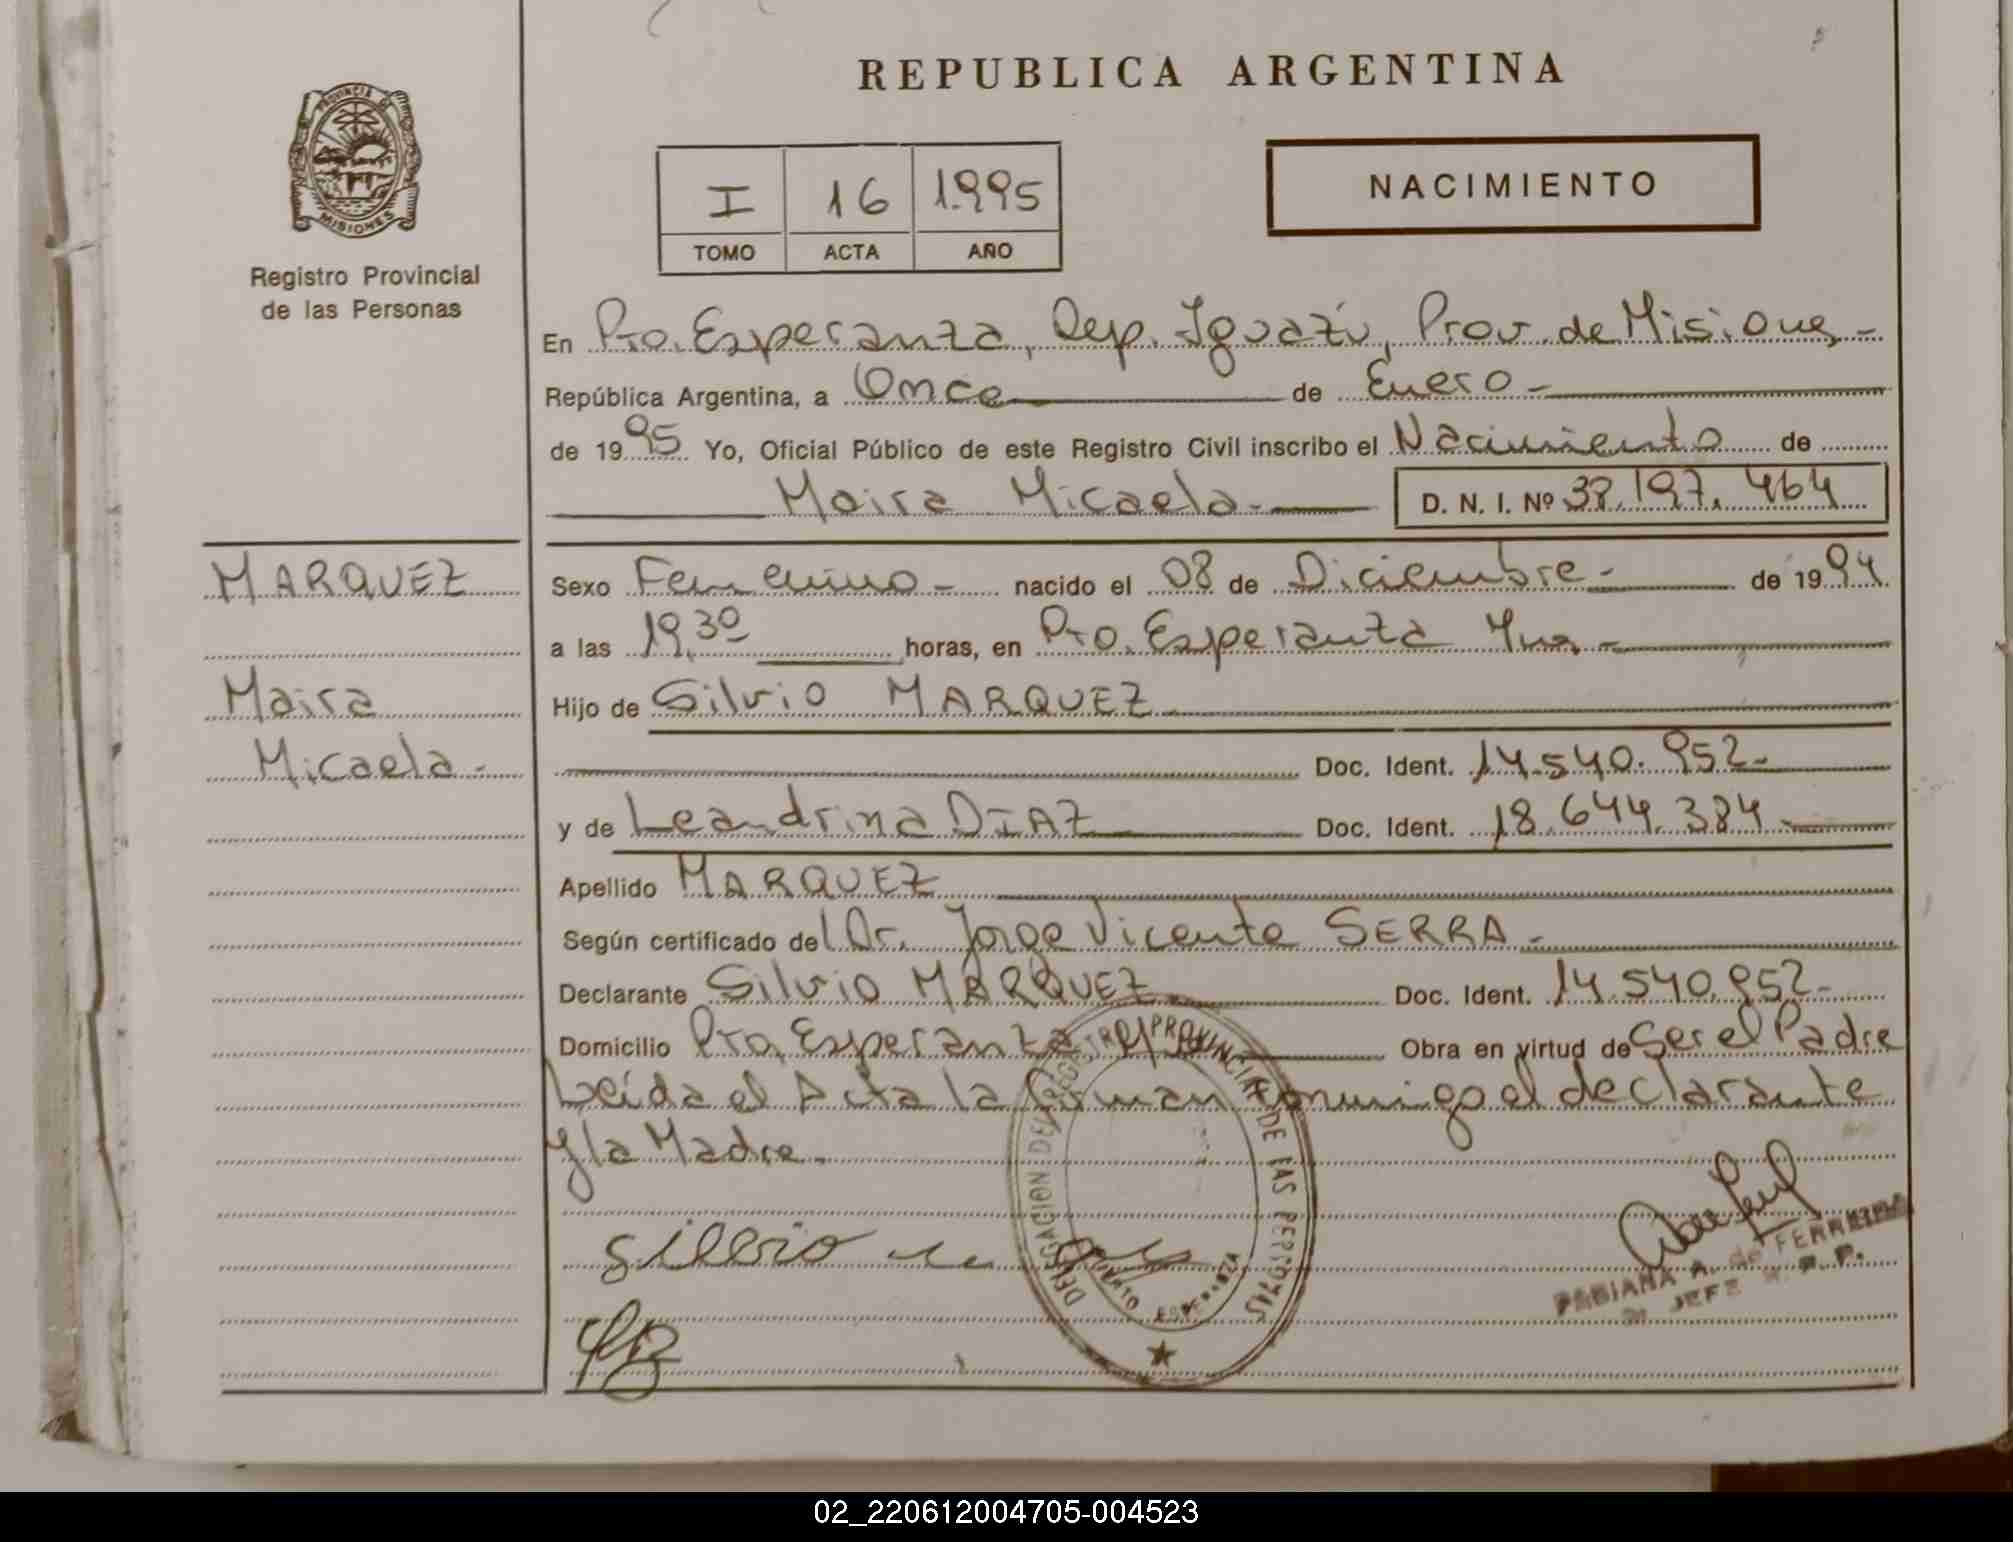 REPUBLICA ARGENTINA
PROVINCIA DE
MISIONES
Registro Provincial
de las Personas
I 16 1.995
TOMO ACTA AÑO
NACIMIENTO
En Pto. Esperanza, Dep. Iguazú, Prov. de Misiones-
República Argentina, a Once de Enero-
de 1995 Yo, Oficial Público de este Registro Civil inscribo el Nacimiento de
Maira Micaela- D. N. I. Nº 38.197.464
MARQUEZ
Maira
Micaela-
Sexo Femenino- nacido el 08 de Diciembre- de 1994
a las 19,30 horas, en Pto. Esperanza
Hijo de Silvio MARQUEZ
Doc. Ident. 14.540.952-
y de Leandrina DIAZ Doc. Ident. 18.644.384-
Apellido MARQUEZ
Según certificado del Dr. Jorge Vicente SERRA-
Declarante Silvio MARQUEZ Doc. Ident. 14.540.952-
Domicilio Pto. Esperanza Obra en virtud de Ser el Padre
Leída el Acta la firman conmigo el declarante
y la Madre.
Silvio
DELEGACION DEL REGISTRO PROVINCIAL DE LAS PERSONAS
PUERTO ESPERANZA
FABIANA A. de FERREIRA
JEFE R. P. P.
02_220612004705-004523